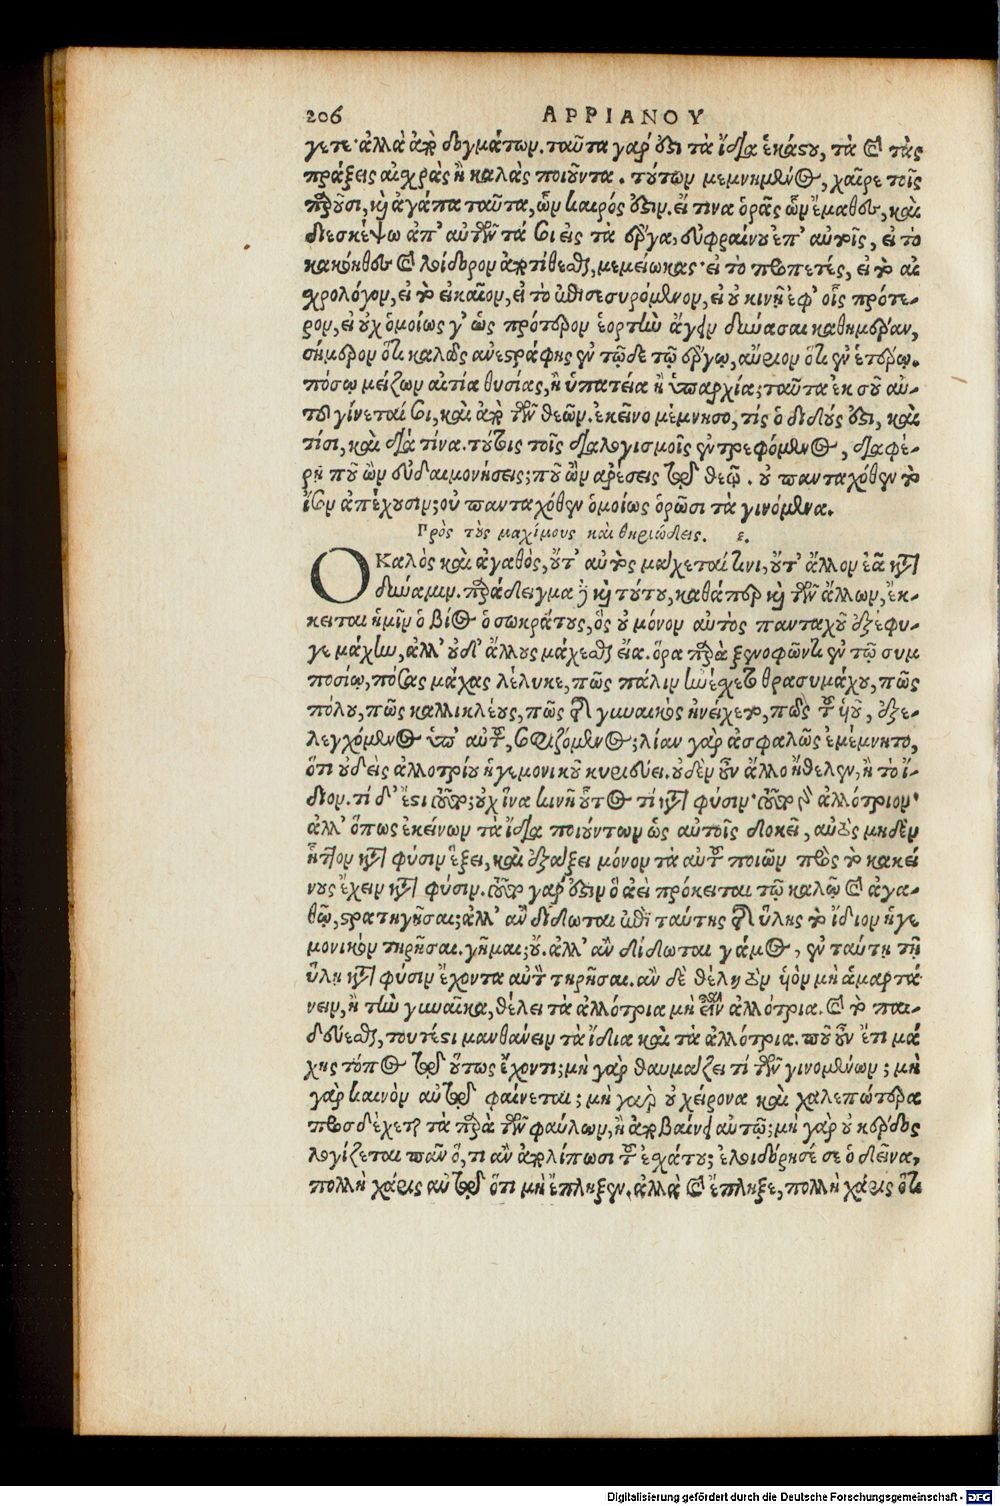 206 ΑΡΡΙΑΝΟΥ
γετε· ἀλλὰ ἀπὸ δογμάτων. ταῦτα γάρ ὅτι τὰ ἴδια ἑκάστου, τὰ καὶ τὰς
πράξεις αἰσχρὰς ἢ καλὰς ποιοῦντα. τούτων μεμνημένος, χαῖρε τοῖς
παροῦσι, καὶ ἀγάπα ταῦτα, ὧν καιρός ὅτιν. εἴ τινα ὁρᾷς ὧν ἔμαθες, καὶ
διεσκέψω ἀπ' αὐτῶν τά σοι εἰς τὰ ἔργα, εὐφραίνου ἐπ' αὐτοῖς, εἰ τὸ
κακόηθες καὶ λοίδορον ἀποτίθεσθαι, μεμείωκας· εἰ τὸ προπετές, εἰ τὸ αἰ
χρολόγον, εἰ τὸ εἰκαῖον, εἰ τὸ ἐπισεσυρόμενον, εἰ οὐ κινῇ ἐφ' οἷς πρότε-
ρον, εἰ οὐχ ὁμοίως γ' ὡς πρότερον ἑορτὴν ἄγειν δύνασαι καθημέραν,
σήμερον ὅτι καλῶς ἀνεστράφης ἐν τῷδε τῷ ἔργῳ, αὔριον ὅτι ἐν ἑτέρῳ.
πόσῳ μείζων αἰτία θυσίας, ἢ ὑπατεία ἢ ὑπαρχία; ταῦτα ἐκ σοῦ αὐ-
τοῦ γίνεταί σοι, καὶ ἀπὸ τῶν θεῶν. ἐκεῖνο μέμνησο, τίς ὁ διδούς ἐστι, καὶ
τίσι, καὶ διὰ τίνα. τούτοις τοῖς διαλογισμοῖς ἐντρεφόμενος, διαφέ-
ρῃ ποῦ ὢν εὐδαιμονήσεις; ποῦ ὢν ἀρέσεις τῷ θεῷ. οὐ πανταχόθεν τὸ
ἴσον ἀπέχουσιν; οὐ πανταχόθεν ὁμοίως ὁρῶσι τὰ γινόμενα.
Πρὸς τοὺς μαχίμους καὶ θηριώδεις. ε.
Ο Καλὸς καὶ ἀγαθὸς, οὔτ' αὐτὸς μάχεταί τινι, οὔτ' ἄλλον ἐᾷ κατὰ
δύναμιν. παράδειγμα δὲ καὶ τούτου, καθάπερ καὶ τῶν ἄλλων, ἔκ-
κειται ἡμῖν ὁ βίος ὁ σωκράτους, ὃς οὐ μόνον αὐτὸς πανταχοῦ ἐξέφυ-
γε μάχην, ἀλλ' οὐδ' ἄλλους μάχεσθαι εἴα. ὅρα παρὰ ξενοφῶντι ἐν τῷ συμ
ποσίῳ, πόσας μάχας λέλυκε, πῶς πάλιν ἠνέσχετο θρασυμάχου, πῶς
πόλου, πῶς καλλικλέους, πῶς τῆς γυναικὸς ἠνείχετο, πῶς τοῦ υἱοῦ, ἐξε-
λεγχόμενος ὑπ' αὐτοῦ, σοφιζόμενος; λίαν γὰρ ἀσφαλῶς ἐμέμνητο,
ὅτι οὐδεὶς ἀλλοτρίου ἡγεμονικοῦ κυριεύει. οὐδὲν οὖν ἄλλο ἤθελεν, ἢ τὸ ἴ-
διον. τί δ' ἔστι τοῦτο; οὐχ ἵνα κινῇ οὗτος τὶ κατὰ φύσιν· τοῦτο γὰρ ἀλλότριον·
ἀλλ' ὅπως ἐκείνων τὰ ἴδια ποιούντων ὡς αὐτοῖς δοκεῖ, αὐτὸς μηδὲν
ἧττον κατὰ φύσιν ἕξει, καὶ διάξει μόνον τὰ αὑτοῦ ποιῶν πρὸς τὸ κακεί
νους ἔχειν κατὰ φύσιν. τοῦτο γάρ ἐστιν ὃ ἀεὶ πρόκειται τῷ καλῷ καὶ ἀγα-
θῷ, στρατηγῆσαι; ἀλλ' ἂν δίδωται ἐπὶ ταύτης τῆς ὕλης τὸ ἴδιον ἡγε
μονικὸν τηρῆσαι. γῆμαι; οὔ. ἀλλ' ἂν δίδωται γάμος, ἐν ταύτῃ τῇ
ὕλῃ κατὰ φύσιν ἔχοντα αὑτὸν τηρῆσαι. ἂν δὲ θέλῃ τὸν υἱὸν μὴ ἁμαρτά
νειν, ἢ τὴν γυναῖκα, θέλει τὰ ἀλλότρια μὴ εἶναι ἀλλότρια. καὶ τὸ παι-
δεύεσθαι, τουτέστι μανθάνειν τὰ ἴδια καὶ τὰ ἀλλότρια. ποῦ οὖν ἔτι μά
χης τόπος τῷ οὕτως ἔχοντι; μὴ γὰρ θαυμάζει τὶ τῶν γινομένων; μὴ
γὰρ καινὸν αὐτῷ φαίνεται; μὴ γὰρ οὐ χείρονα καὶ χαλεπώτερα
προσδέχεται τὰ παρὰ τῶν φαύλων, ἢ ἀποβαίνει αὐτῷ; μὴ γὰρ οὐ κέρδος
λογίζεται πᾶν ὅ, τι ἂν ἀπολίπωσι τοῦ ἐσχάτου; ἐλοιδόρησέ σε ὁ δεῖνα,
πολλὴ χάρις αὐτῷ ὅτι μὴ ἔπληξεν. ἀλλὰ καὶ ἔπληξε, πολλὴ χάρις ὅτι
Digitalisierung gefördert durch die Deutsche Forschungsgemeinschaft - DFG